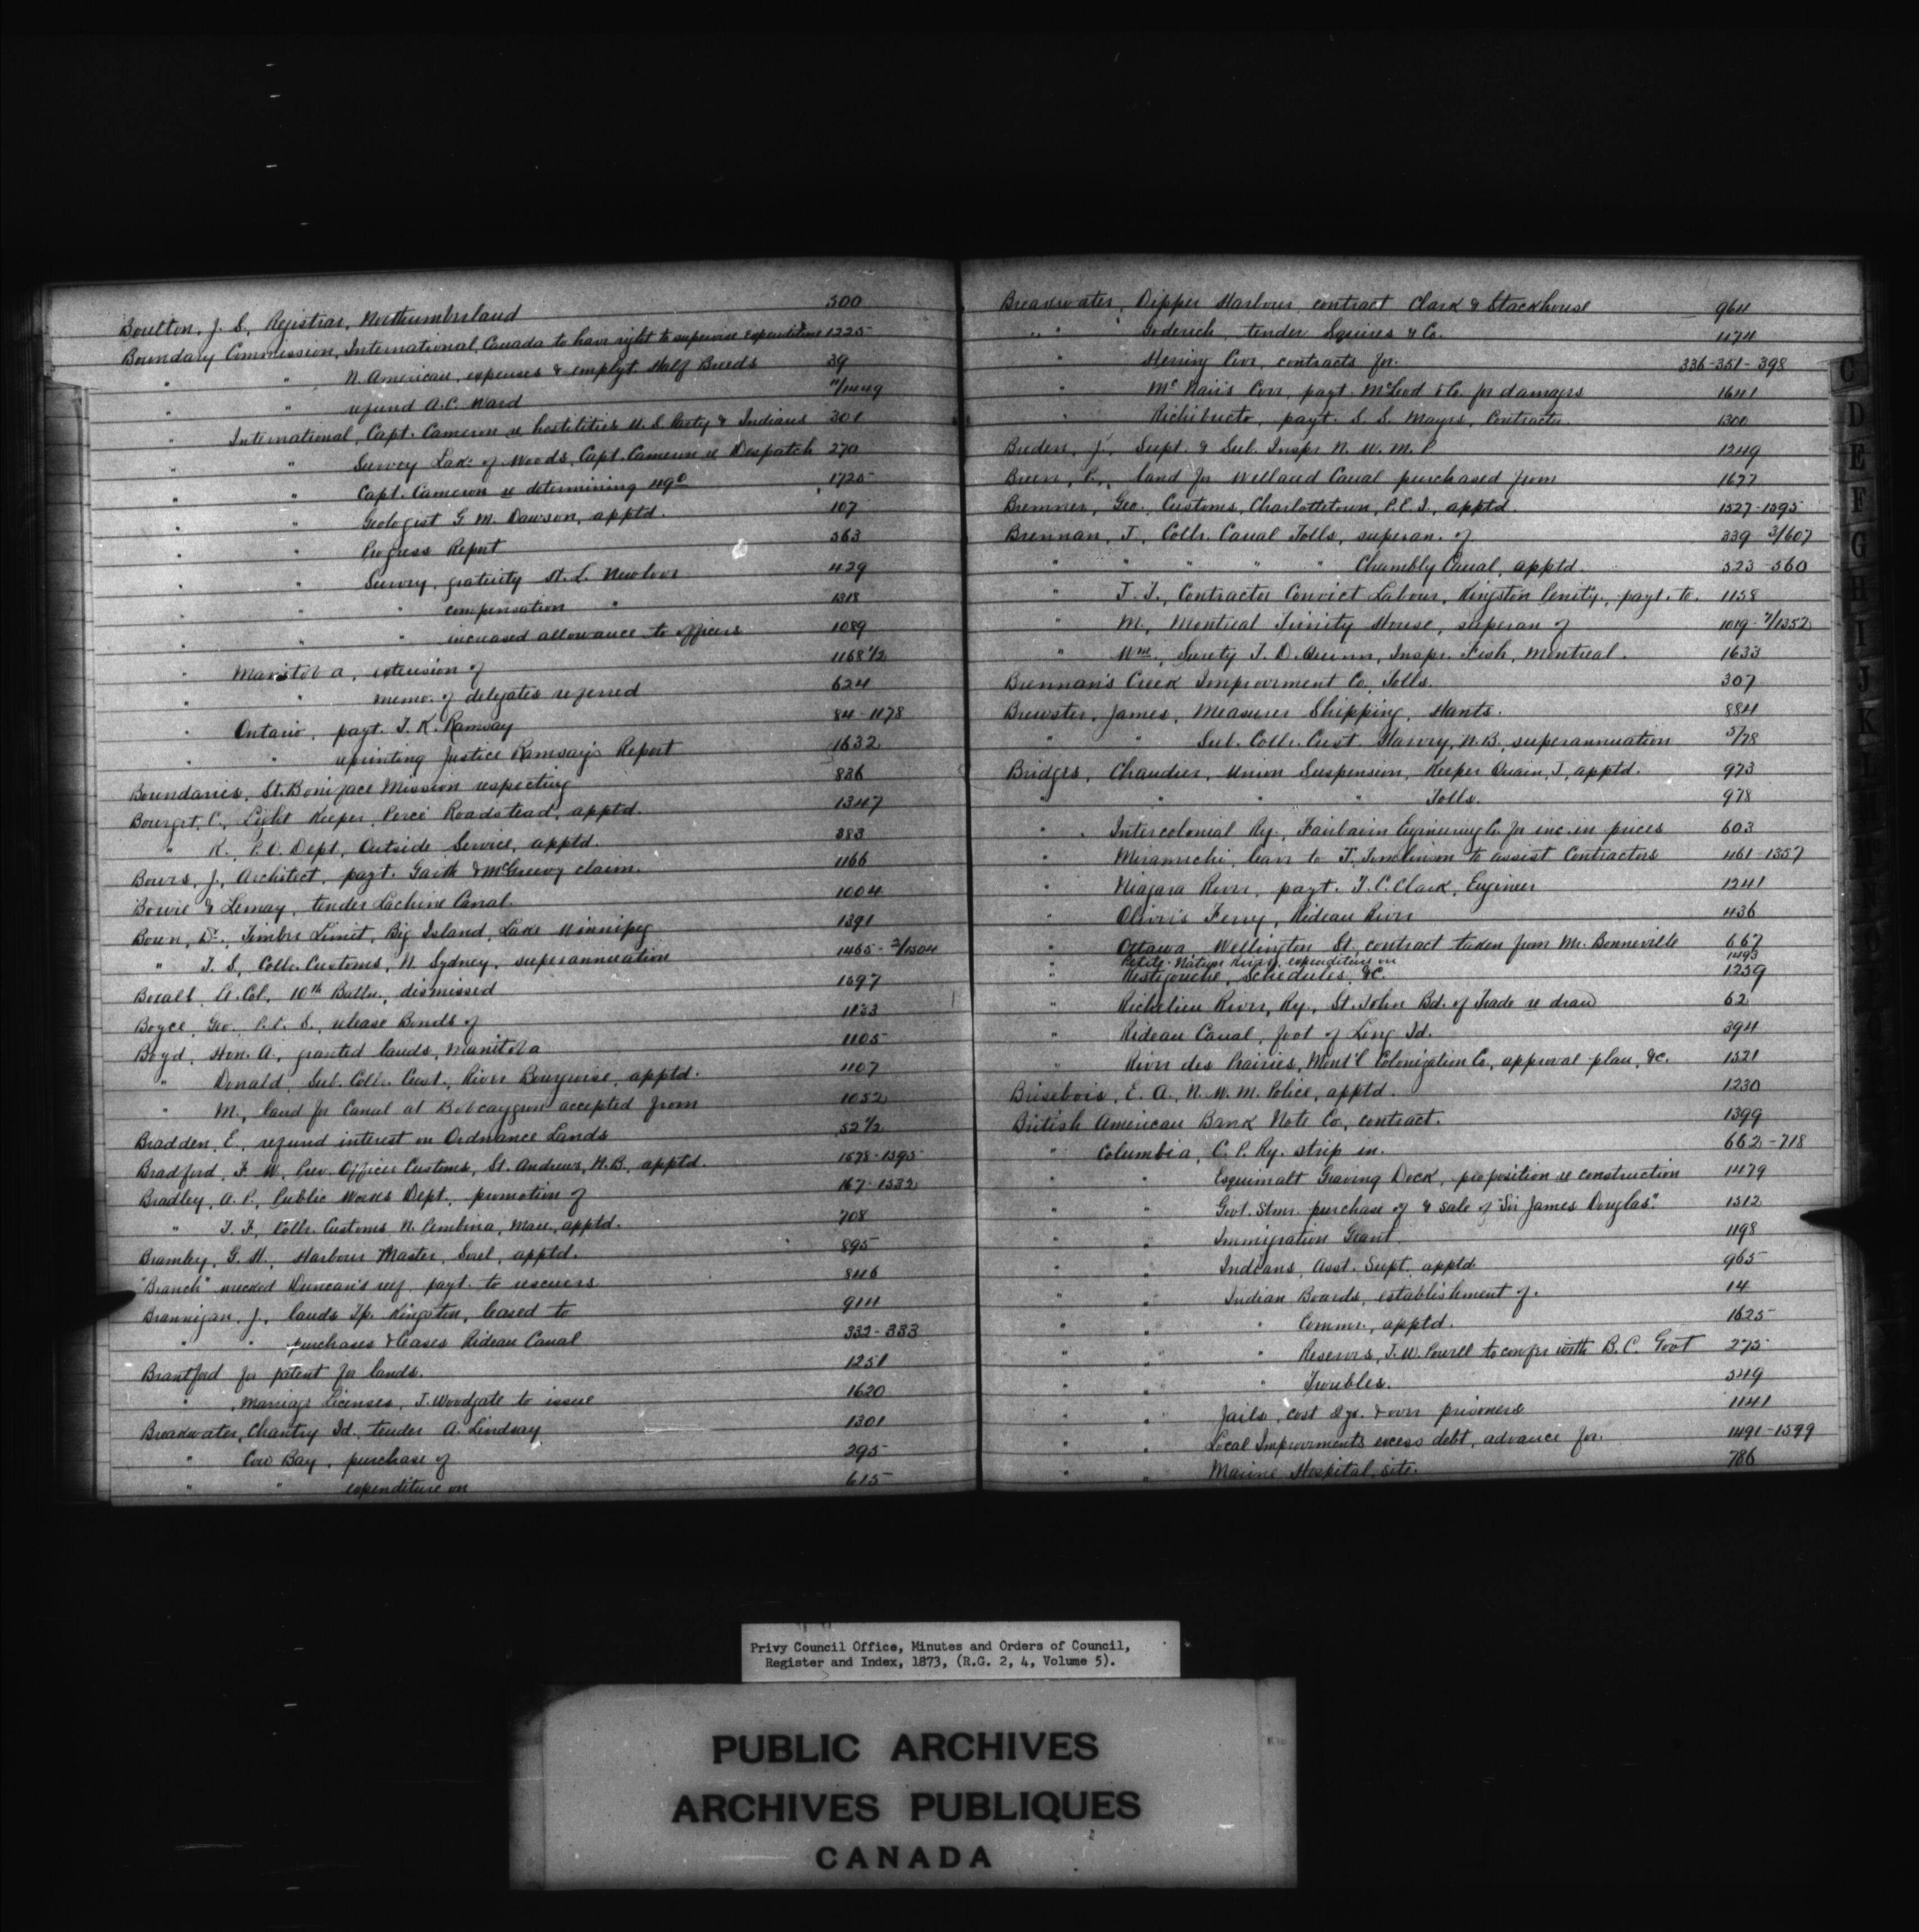 Boulton, J. S., Registrar, Northumberland 500
Boundary Commission, International, Canada to have right to supervise expenditure 1225
" " N. American, expenses & emplyt Half Breeds 39
" " refund A.C. Ward "/1449
" International, Capt. Cameron re hostilities U.S. Party & Indians 301
" " Survey Lake of Woods, Capt. Cameron re Despatch 270
" " Capt. Cameron re determining 49° 1725
" " Geologist G. M. Dawson, apptd. 107
" " Progress Report 563
" " Survey, gratuity St. L. 429
" " " compensation " 1318
" " " increased allowance to officers 1089
" Manitoba, extension of 1168 1/2
" " memo. of delegates referred 624
" Ontario, payt. T. K. Ramsay 84-1178
" " reprinting Justice Ramsay's Report 1632
Boundaries, St. Boniface Mission respecting 836
Bourget, C., Light Keeper, Percé Roadstead, apptd. 1347
" R., P.O. Dept. Outside Service, apptd. 383
Bowes, J., Architect, payt. Garth & McGreevy claim. 1166
Bowie & Lemay, tender Lachine Canal. 1004
Bown, Dr., Timber Limit, Big Island, Lake Winnipeg 1391
" T. S., Collr. Customs, N. Sydney, superannuation 1465-2/1504
Lt. Col. 10th Battn., dismissed 1597
Boyce, Geo. P.C.S., release Bonds of 1133
Boyd, Hon. A., granted lands, Manitoba 1105
" Donald, Sub. Coll. Cust., River Bourgeoise, apptd. 1107
" M., land for Canal at Bobcaygeon accepted from 1052
Bradden, E., refund interest on Ordnance Lands 52 1/2
Bradford, F. W., Prev. Officer Customs, St. Andrews, N.B., apptd. 1578-1595
Bradley, A. P., Public Works Dept., promotion of 167-1532
" T. F., Collr. Customs N. Pembina, Man., apptd. 708
Bramley, G. H., Harbour Master, Sorel, apptd. 895
"Branch" wrecked Duncan's reef payt. to rescuers 846
Brannigan, J., lands Tp. Kingston, leased to 914
" " purchases & leases Rideau Canal 332-333
Brantford for patent for lands. 1251
" Marriage Licenses, T. Woodgate to issue 1620
Breakwater, Chantry Id., tender A. Lindsay 1301
" Cow Bay, purchase of 295
" " expenditure on 615
Breakwater, Dipper Harbour, contract Clark & Stackhouse 964
" " Goderich, tender Squires & Co. 1174
" Herring Cove, contracts for. 336-351-398
" McNair's Cove, payt. McLeod & Co. for damages 1641
" Richibucto, payt. S. S. Mayes, Contractor. 1300
Breden, J., Supt. & Sub. Inspr. N. W. M. P. 1249
Breen, P., land for Welland Canal purchased from 1677
Bremner, Geo., Customs, Charlottetown, P.E.I., apptd. 1527-1595
Brennan, T., Collr. Canal Tolls, superan. of 339-3/607
" " " " " Chambly Canal, apptd. 523-560
" T. F., Contractor Convict Labour, Kingston Penity., payt. to. 1158
" M., Montreal Trinity House, superan of 1019-7/1352
" Wm., Surety T. D. Quinn, Inspr. Fish, Montreal. 1633
Brennan's Creek Improvement Co., Tolls. 307
Brewster, James, Measurer Shipping, Hants. 884
" " Sub. Collr. Cust. Harvey, N.B., superannuation 5/78
Bridges, Chaudiere, Union Suspension, Keeper Quain, T., apptd. 973
" " " " Tolls. 978
" Intercolonial Ry., Fairbairn Engineering Co. for inc. in prices 603
" Miramichi, leave to T. Tomlinson to assist Contractors 461-1357
" Niagara River, payt. T. C. Clark, Engineer 1241
" Oliver's Ferry, Rideau River 436
" Ottawa, Wellington St. contract taken from Mr. Bonneville 667
" Petite Nation River, expenditure on 1493
" Restigouche, Schedules, &c. 1259
" Richelieu River, Ry., St. John Bd. of Trade re draw 62
" Rideau Canal, foot of Long Id. 394
" River des Prairies, Mont'l Colonization Co., approval plan, &c. 1521
Brisebois, E. A., N. W. M. Police, apptd. 1230
British American Bank Note Co., contract. 1399
" Columbia, C. P. Ry. strip in. 662-718
" " Esquimalt Graving Dock, proposition re construction 1479
" " Govt. Stmr. purchase of & sale of "Sir James Douglas". 1512
" " Immigration Grant. 1198
" " Indians, Asst. Supt. apptd. 965
" " Indian Boards, establishment of. 14
" " " Commr., apptd. 1625
" " " Reserves, T. W. Powell to confer with B. C. Govt 275
" " " Troubles. 549
" " Jails, cost 2 yr. & over prisoners 1141
" " Local Improvements excess debt, advance for. 1491-1599
" " Marine Hospital, site. 786
C
D
E
F
G
H
I
J
K
Privy Council Office, Minutes and Orders of Council,
Register and Index, 1873, (R.G. 2, 4, Volume 5).
PUBLIC ARCHIVES
ARCHIVES PUBLIQUES
CANADA